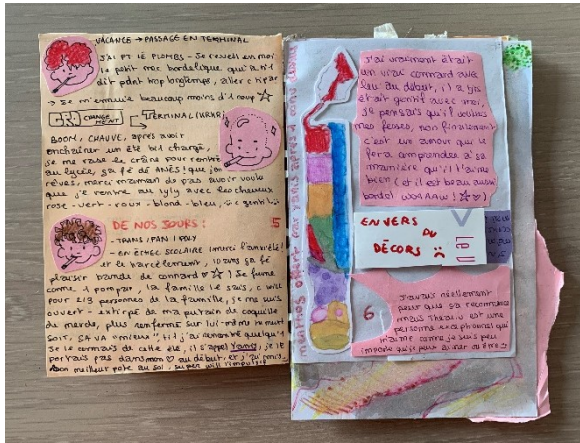 VACANCE → PASSAGE EN TERMINAL
J'AI PT LÉ PLOMBS - Je reveil en moi
le petit mec bordelique qui a n'il
dit point trop longtemps, aller c tipar
→ Je m'ennuie beaucoup moins d'1 coup ☆
CHANGEMENT TERMINAL
BOOM, CHAUVE, après avoir
enchainer un été bil chargé,
je me rase le crâne pour rentré
au lycée, sa fé dé ANÉES que j'en
rêves, merci maman de pas avoir voulu
que je rentre au lyly avec les cheveux
rose - vert - roux - blond - bleu, gentil
DE NOS JOURS : 5
- TRANS / PAN / POLY
- EN ÉCHEC SCOLAIRE (merci l'anxiété!
et le harcèlement, 10 ans ça fé
plaisir bande de connard ♡ ☆) Je fume
comme 1 pompier, la famille le sais, c
pour 2/3 personnes de la famille, je me suis
ouvert - extirpé de ma putain de coquille
de merde, plus renfermé sur lui
soit, SA VA "MIEUX", j'ai rencontré quelqu'1
Je le connais de cette été, il s'appel Yanis, je le
portais pas dans mon ♡ au début, et j'ai
bon meilleur pote au sol, super
J'ai vraiment était
un vrai connard avec
lui au début, il a tjs
était gentil avec moi,
je pensais qu'il voulais
mes fesses, non finalement
c'est un amour qui te
fera comprendre à sa
manière qu'il t'aime
bien (et il est beau aussi
bordel waaaw! ☆ ♡)
ENVERS
DU
DÉCORS
Le
6
J'avais réellement
peur que sa recommence
mais Théa
personne exceptionnel qui
m'aime comme je suis peu
importe qui je peux aimer ou être
offert par Yanis